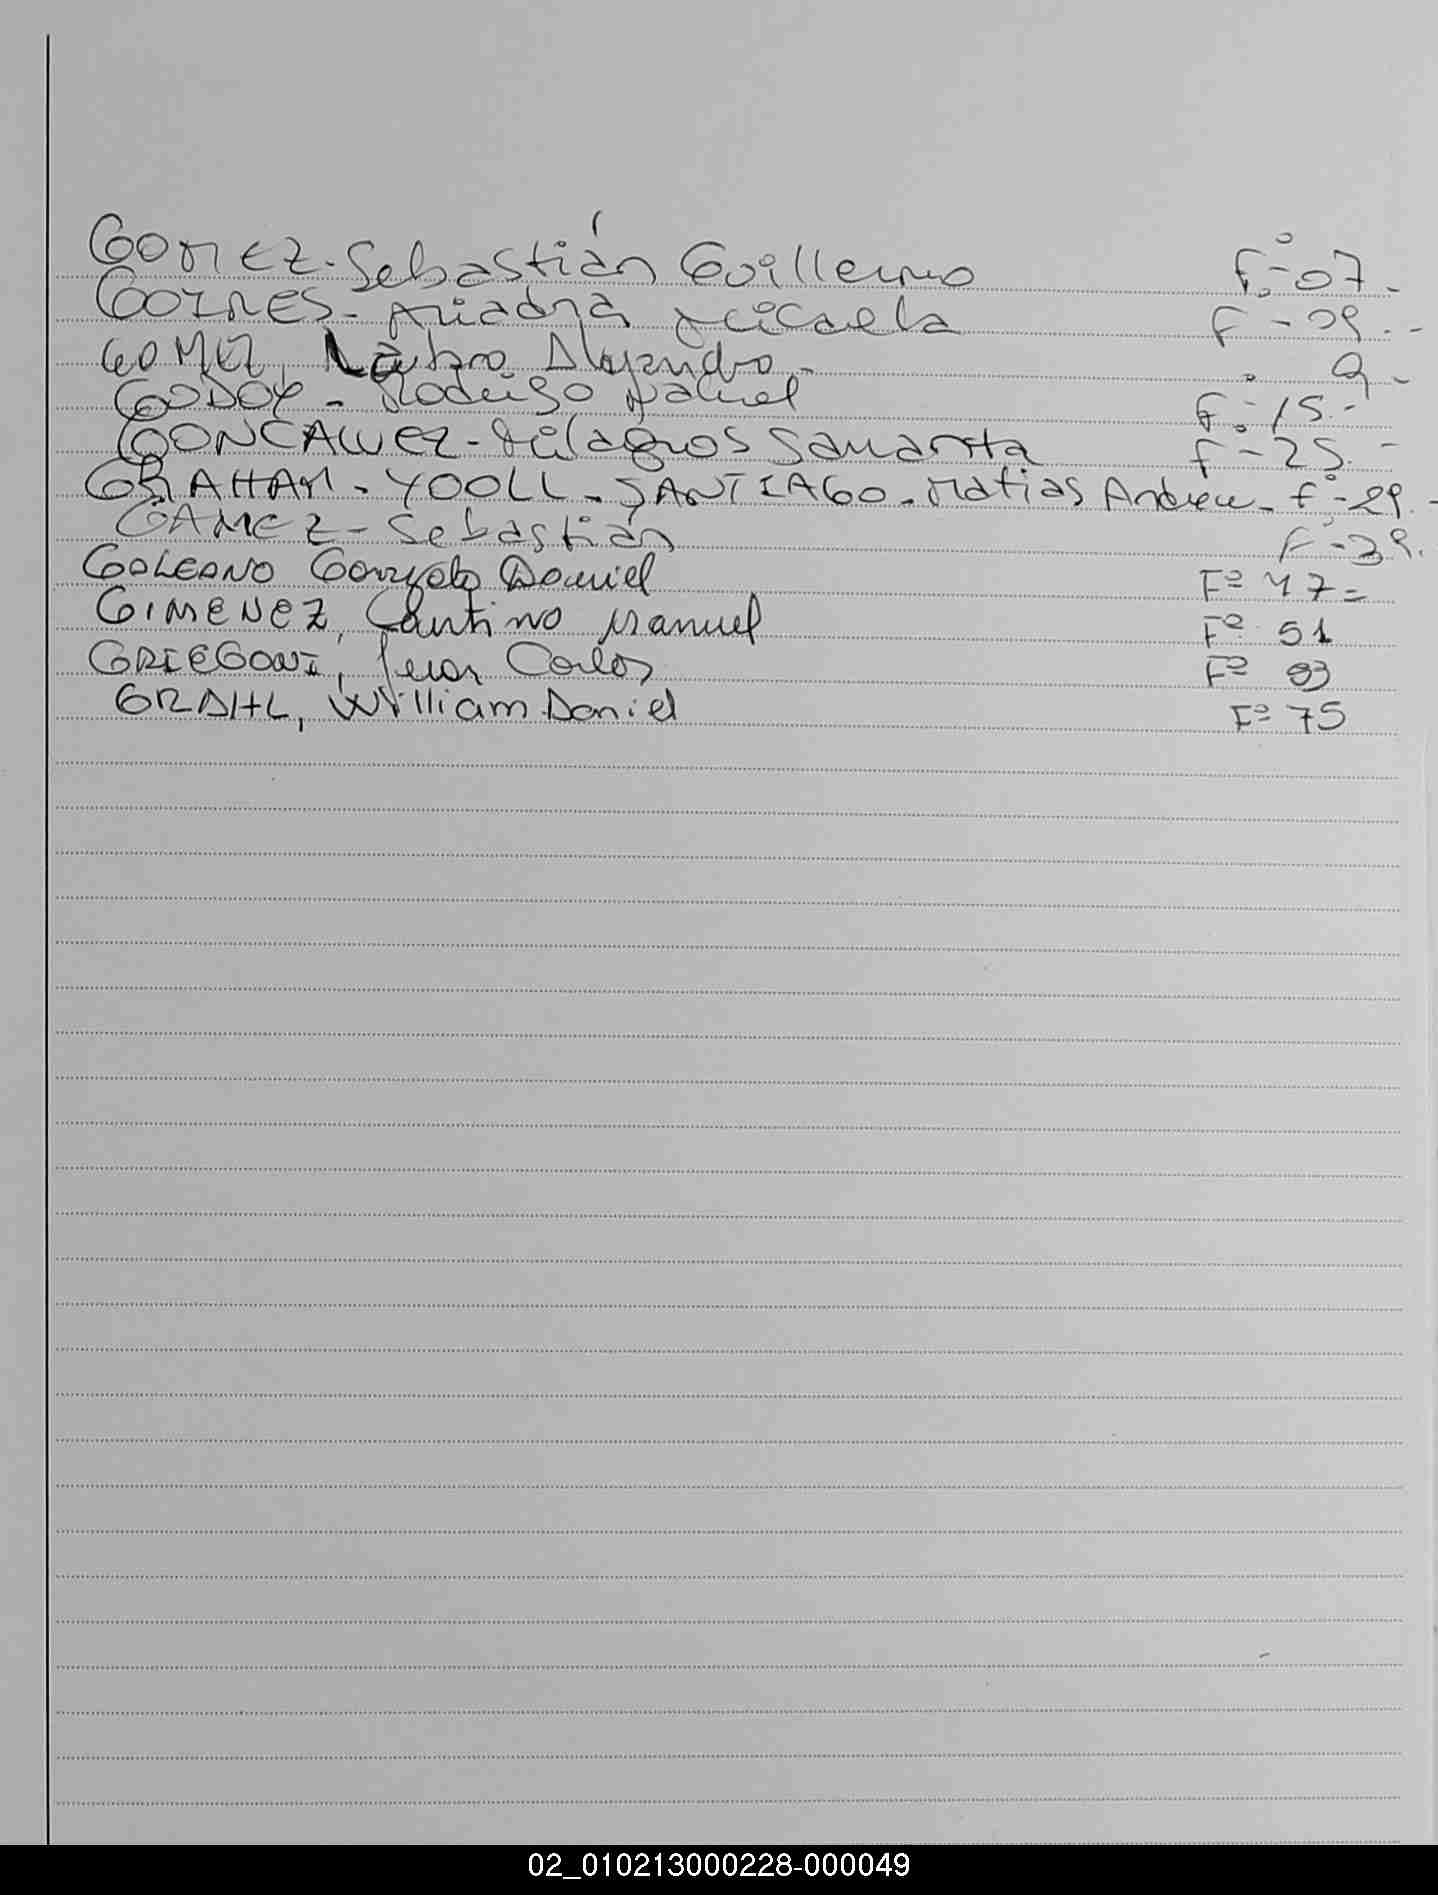 GOMEZ - Sebastián Guillermo F°- 07.-
GOINES - Ariadna Micaela F°- 09.--
GOMEZ, Lautaro Alejandro.- 9.-
GODOY - Rodrigo Nahuel F°- 15.-
GONCALVEZ - Milagros Samanta F°- 25.-
GRAHAM - YOOLL - SANTIAGO - Matias Andrew - F°- 29.-
GAMEZ - Sebastián F°- 39.
GALEANO Gonzalo Daniel F° 47=
GIMENEZ, Santino Manuel F° 51
GRIEGONI, Juan Carlos F°
GRAHL, William Daniel F° 75
02_010213000228-000049